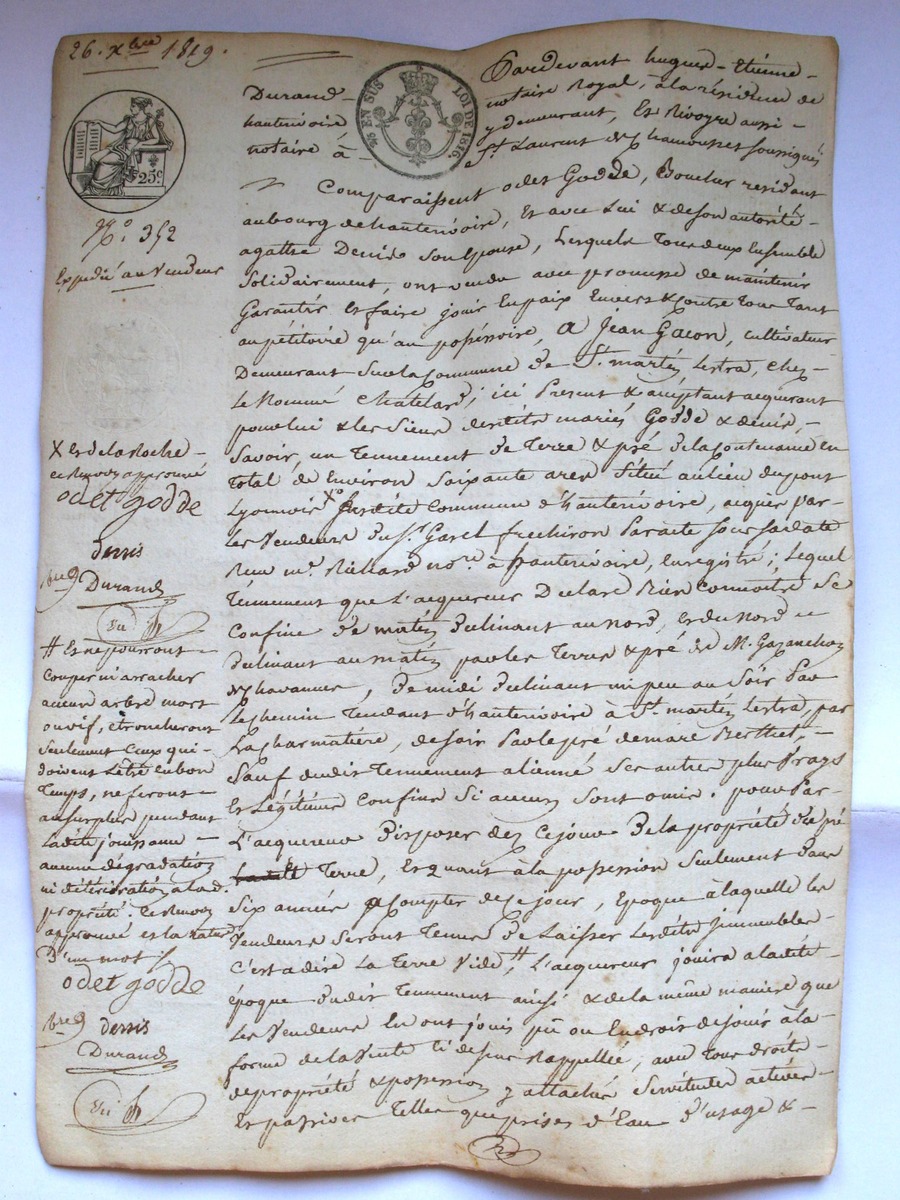 26. xbre 1819.
Pardevant hugues-Etienne-
Durand notaire Royal, à la résidence de
hauterivoire y demeurant, Et Rivoyre aussi
notaire à St Laurent de Chamousset soussignés
25 EN SUS LOI DE 1816.
25c
No. 352
Expédié au Vendeur
Comparaissent odet Godde, Boucher residant
aubourg dehauterivoire, Et avec Lui & deson autorité
agathe Denis Son Epouse, Lesquels Tous deux Ensemble
Solidairement, ont vendu avec promesse de maintenir
Garantir Et faire jouir En paix Envers & contre Tous Tant
au pétitoire qu'au possessoire, a Jean Gacon, cultivateur
Demeurant Sur la Commune de St. martin Lestra, chez
Le Nommé Chatelard; ici Present & acceptant acquerant
pour lui & les Siens desdits mariés Godde & denis,
Savoir, un Tennement de Terre & pré de la Contenance en
Total de Environ Soixante ares Situé au lieu du pont
Lyonnois X Susdite Commune d'hauterivoire, acquis par
Les Vendeurs du Sr. Garel par acte sous sa date
Reçu me. Richard nore. à hauterivoire, Enregistré; Lequel
Tennement que L'acquereur Declare Bien connoitre Se
Confine De matin Declinant au nord, Et du Nord
Declinant au matin par les Terres & pré de M.
de chavannes, De midi Declinant un peu au Soir par
Le chemin Tendant d'hauterivoire à St. martin Lestra, par
La charmatière, de soir Par le pré de marc Berthet,
Sauf dudit Tennement aliénné Ses autres plus Vrays
Et Légitimes Confins Si aucuns Sont omis. pour Par
L'acquereur Disposer des Cejour De la propriété de pré
Terre, Et quant à la possession Seulement Dans
Six années a Compter de ce jour, Epoque à laquelle les
Vendeurs Seront Tenus De Laisser Lesdits Immeubles
C'est a dire La Terre Vide #, L'acquereur jouira a ladite
époque dudit Tennement ainsi & de la même maniere que
Les Vendeurs En ont joui pu ou En droit de jouir à la
forme de la Vente Ci dessus Rappellée, avec Tous droits
de propriété & possession y attachés Servitudes actives
Et passives Telles que prises d'Eau d'usage &
X Et de la Roche
ce Renvoy approuvé
odet godde
denis
Durand
# Et ne pourront
Couper ni arracher
aucun arbre mort
ou vif, étroncheront
Seulement Ceux qui
doivent L'être en bon
Temps, ne feront
au surplus pendant
Ladite jouissance
aucune dégradation
ni détérioration à lad.
propriété. Ce Renvoy
approuvé et la rature
D'un mot
odet godde
denis
Durand